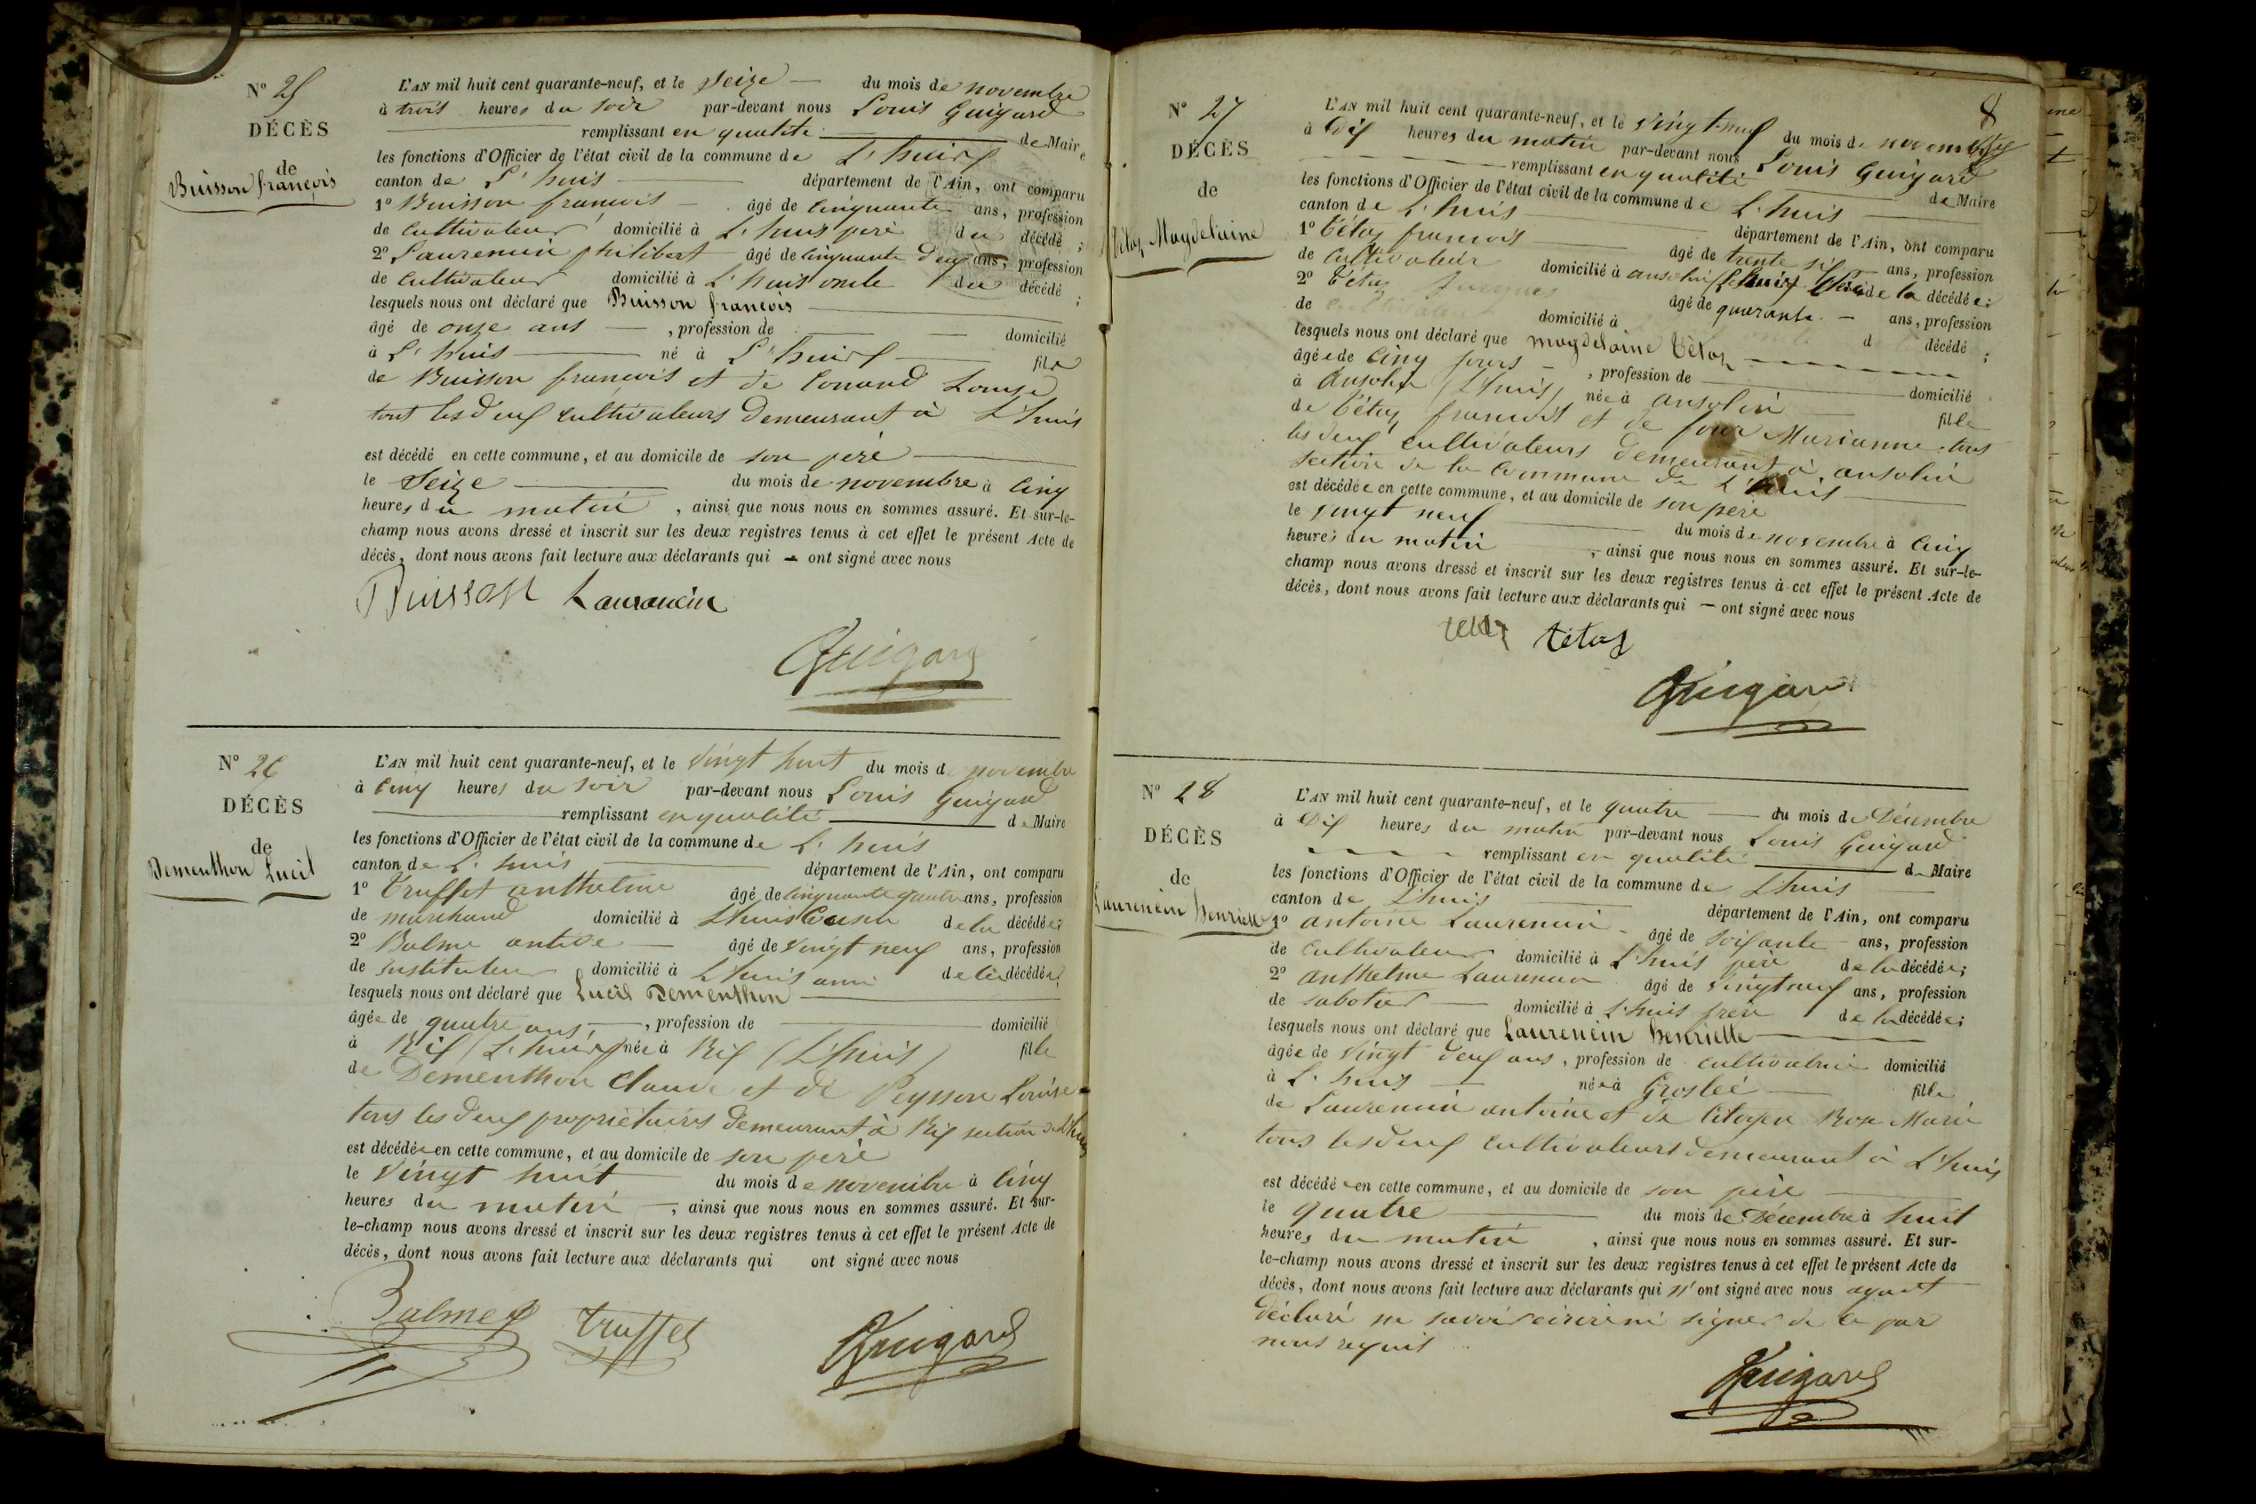 N° 25
DÉCÈS
de
Buisson françois
L'AN mil huit cent quarante-neuf, et le Seize du mois de novembre
à trois heures du soir par-devant nous Louis Guigard
remplissant en qualité de Maire
les fonctions d'Officier de l'état civil de la commune de L'huis
canton de L'huis département de l'Ain, ont comparu
1° Buisson francois âgé de cinquante ans, profession
de cultivateur domicilié à L'huis père du décédé ;
2° Laurencin philibert âgé de cinquante deux ans, profession
de cultivateur domicilié à L'huis oncle du décédé ;
lesquels nous ont déclaré que Buisson françois
âgé de onze ans , profession de domicilié
à L'huis né à L'huis fils
de Buisson francois et de Conand Louise
tout les deux cultivateurs demeurant à L'huis
est décédé en cette commune, et au domicile de son père
le Seize du mois de novembre à cinq
heures du matin , ainsi que nous nous en sommes assuré. Et sur-le-
champ nous avons dressé et inscrit sur les deux registres tenus à cet effet le présent Acte de
décès, dont nous avons fait lecture aux déclarants qui ont signé avec nous
Buisson Laurancin
Guigard
N° 26
DÉCÈS
de
Dementhon Lucil
L'AN mil huit cent quarante-neuf, et le vingt huit du mois d novembre
à cinq heures du soir par-devant nous Louis Guigard
remplissant en qualité de Maire
les fonctions d'Officier de l'état civil de la commune de L'huis
canton de L'huis département de l'Ain, ont comparu
1° Truffet anthelme âgé de cinquante quatre ans, profession
de marchand domicilié à L'huis Cousin de la décédée ;
2° Balme âgé de vingt neuf ans, profession
de instituteur domicilié à L'huis ami de la décédée ;
lesquels nous ont déclaré que Lucil Dementhon
âgée de quatre ans , profession de domicilié
à Rix (L'huis) née à Rix (L'huis) fille
de Dementhon Claude et de Peysson Louise
tous les deux propriétaires demeurant à Rix section de L'huis
est décédée en cette commune, et au domicile de son père
le vingt huit du mois de novembre à cinq
heures du matin , ainsi que nous nous en sommes assuré. Et sur-
le-champ nous avons dressé et inscrit sur les deux registres tenus à cet effet le présent Acte de
décès, dont nous avons fait lecture aux déclarants qui ont signé avec nous
Balme Truffet Guigard
8
N° 27
DÉCÈS
de
Tétaz Magdelaine
L'AN mil huit cent quarante-neuf, et le vingt-neuf du mois de novembre
à dix heures du matin par-devant nous Louis Guigard
remplissant en qualité de Maire
les fonctions d'Officier de l'état civil de la commune de L'huis
canton de L'huis département de l'Ain, ont comparu
1° Tétaz francois âgé de trente six ans, profession
de cultivateur domicilié à ansolin (L'huis) père de la décédée ;
2° Tétaz âgé de quarante ans, profession
de cultivateur domicilié à d décédé ;
lesquels nous ont déclaré que magdelaine Tétaz
âgée de cinq jours , profession de domicilié
à ansolin (L'huis) née à ansolin fille
de Tétaz francois et de Marianne tous
les deux cultivateurs demeurant à ansolin
section de la commune de L'huis
est décédée en cette commune, et au domicile de son père
le vingt neuf du mois de novembre à cinq
heures du matin , ainsi que nous nous en sommes assuré. Et sur-le-
champ nous avons dressé et inscrit sur les deux registres tenus à cet effet le présent Acte de
décès, dont nous avons fait lecture aux déclarants qui ont signé avec nous
tétaz
Guigard
N° 28
DÉCÈS
de
Laurencin henriette
L'AN mil huit cent quarante-neuf, et le quatre du mois de Décembre
à dix heures du matin par-devant nous Louis Guigard
remplissant en qualité de Maire
les fonctions d'Officier de l'état civil de la commune de L'huis
canton de L'huis département de l'Ain, ont comparu
1° antoine Laurencin âgé de soixante ans, profession
de cultivateur domicilié à L'huis père de la décédée ;
2° anthelme Laurencin âgé de vingt neuf ans, profession
de sabotier domicilié à L'huis frère de la décédée ;
lesquels nous ont déclaré que Laurencin henriette
âgée de vingt deux ans, profession de cultivatrice domicilié
à L'huis née à Groslée fille
de Laurencin antoine et de Citoyen Rose Marie
tous les deux cultivateurs demeurant à L'huis
est décédée en cette commune, et au domicile de son père
le quatre du mois de Décembre à huit
heures du matin , ainsi que nous nous en sommes assuré. Et sur-
le-champ nous avons dressé et inscrit sur les deux registres tenus à cet effet le présent Acte de
décès, dont nous avons fait lecture aux déclarants qui n'ont signé avec nous ayant
déclaré ne savoir écrire ni signer de ce par
nous requis
Guigard